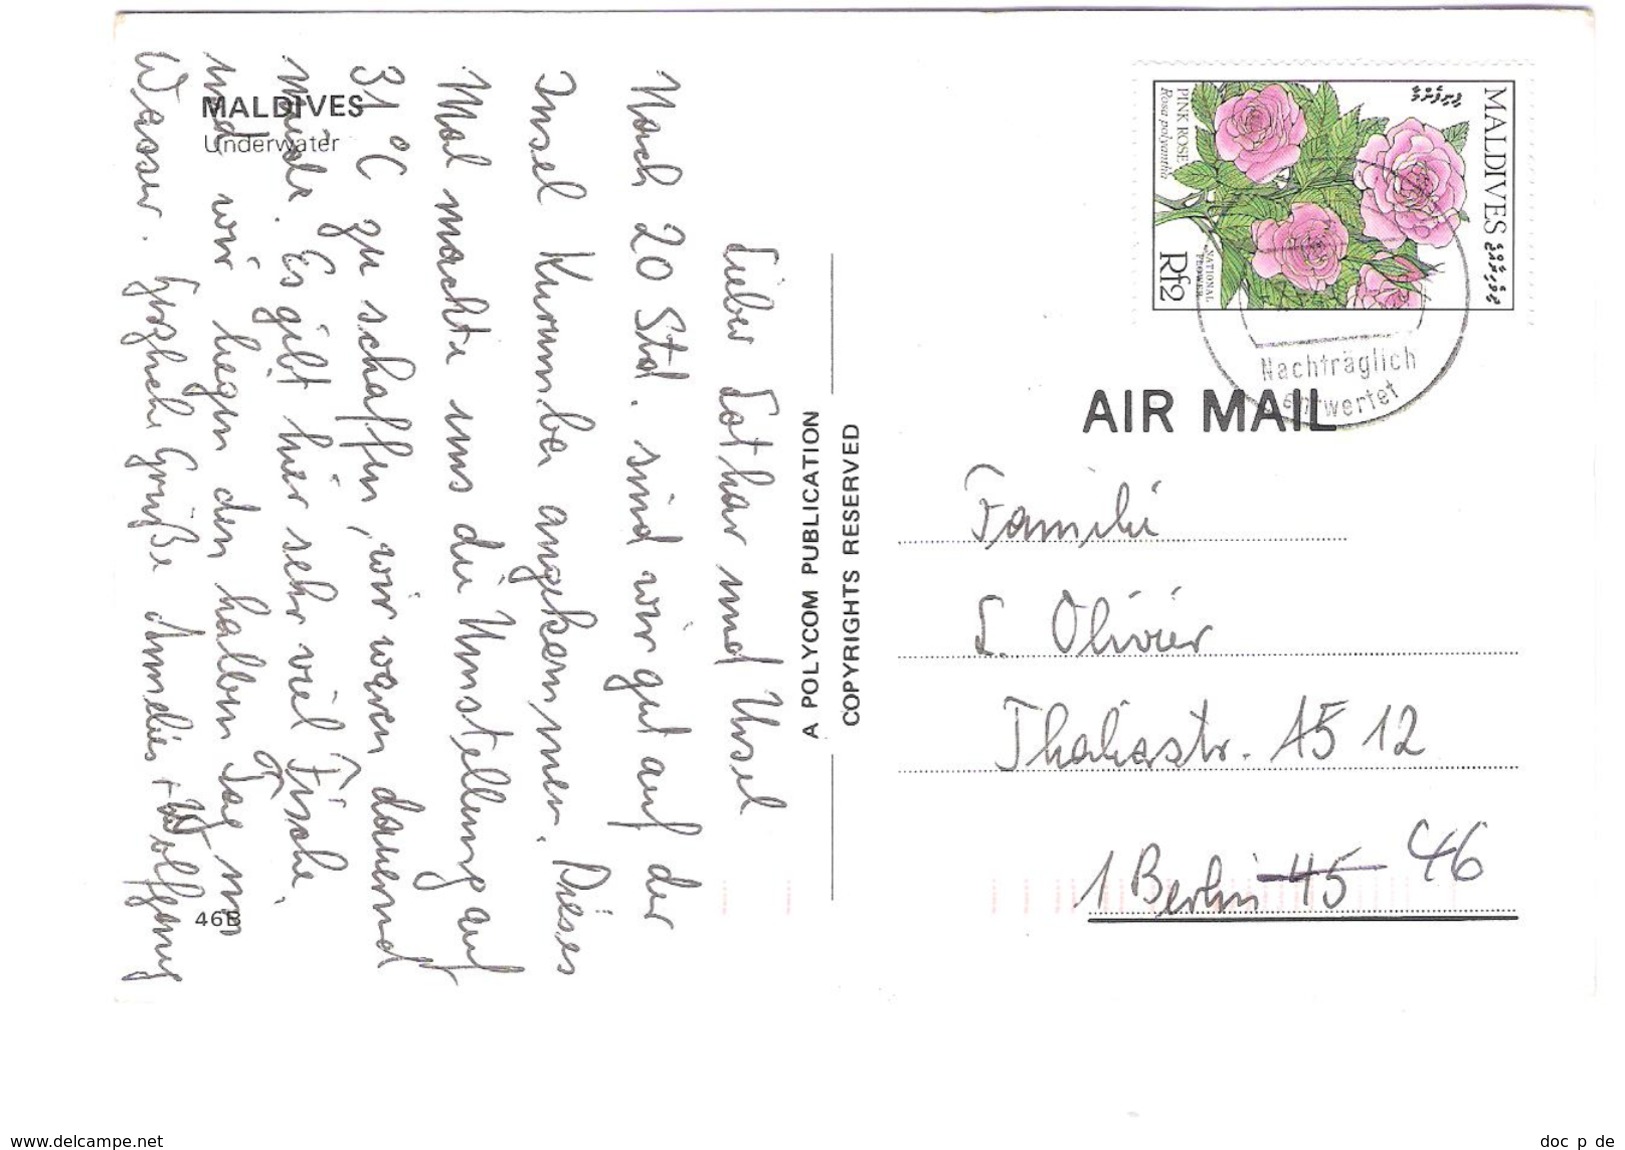 MALDIVES
Underwater
Lieber Lothar und Ursel
Nach 20 Std. sind wir gut auf der
Insel Kurumba angekommen. Dieses
Mal machte uns die Umstellung auf
31 °C zu schaffen, wir waren dauernd
müde. Es gibt hier sehr viel Fische,
und wir liegen den halben Tag im
Wasser. Herzliche Grüße Annelies + Wolfgang
46B
A POLYCOM PUBLICATION
COPYRIGHTS RESERVED
MALDIVES ދިވެހިރާއްޖެ
ފިނިފެންމާ
PINK ROSE
Rosa polyantha
NATIONAL
FLOWER
Rf2
Nachträglich
entwertet
AIR MAIL
Familie
L. Olivier
Thaliastr. 15 12
1 Berlin 45 46
www.delcampe.net
doc p de